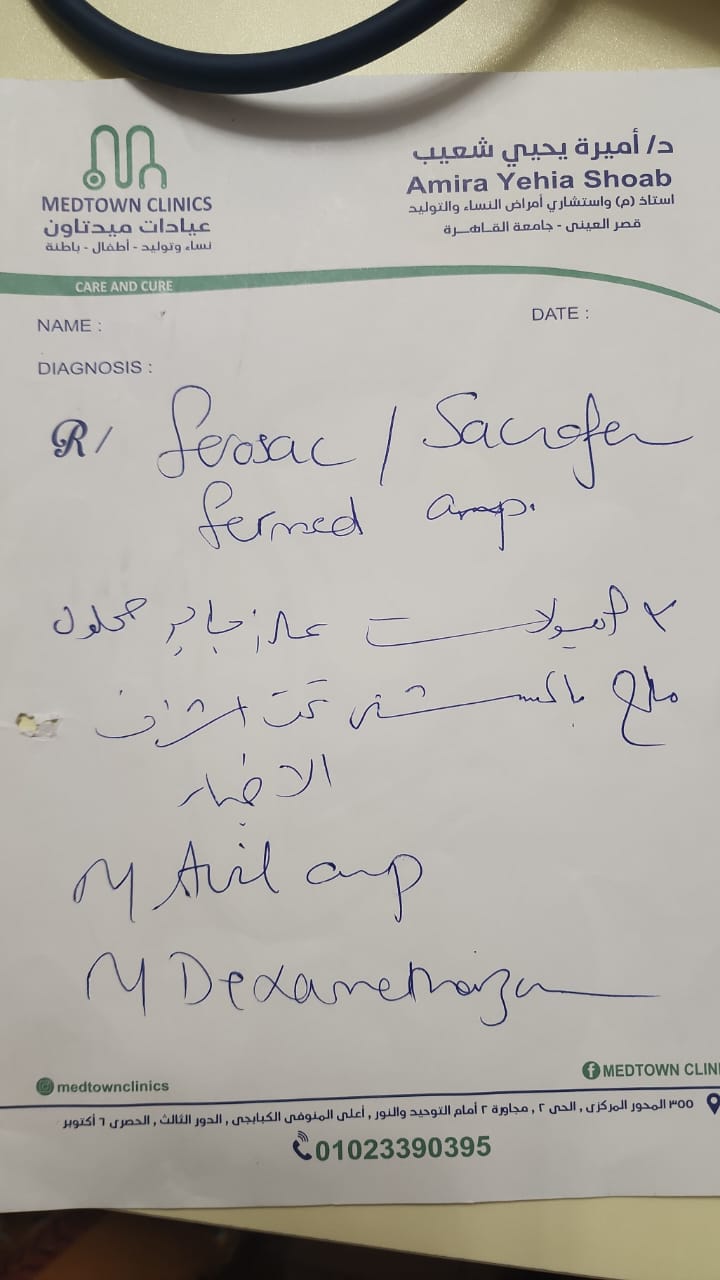 MEDTOWN CLINICS
عيادات ميدتاون
نساء وتوليد - أطفال - باطنة
د/ أميرة يحيي شعيب
Amira Yehia Shoab
استاذ (م) واستشاري أمراض النساء والتوليد
قصر العينى - جامعة القاهرة
CARE AND CURE
NAME :
DATE :
DIAGNOSIS :
R/ ferosac / Sacrofer
fermed amp.
٢ امبولات على محلول
ملح بالمستشفى تحت اشراف
Avil amp
Dexamethazon
medtownclinics
MEDTOWN CLINI
٣٠٠ المحور المركزى , الحى ٢ , مجاورة ٢ أمام التوحيد والنور , أعلى المنوفى الكبابجى , الدور الثالث , الحصرى ٦ أكتوبر
01023390395